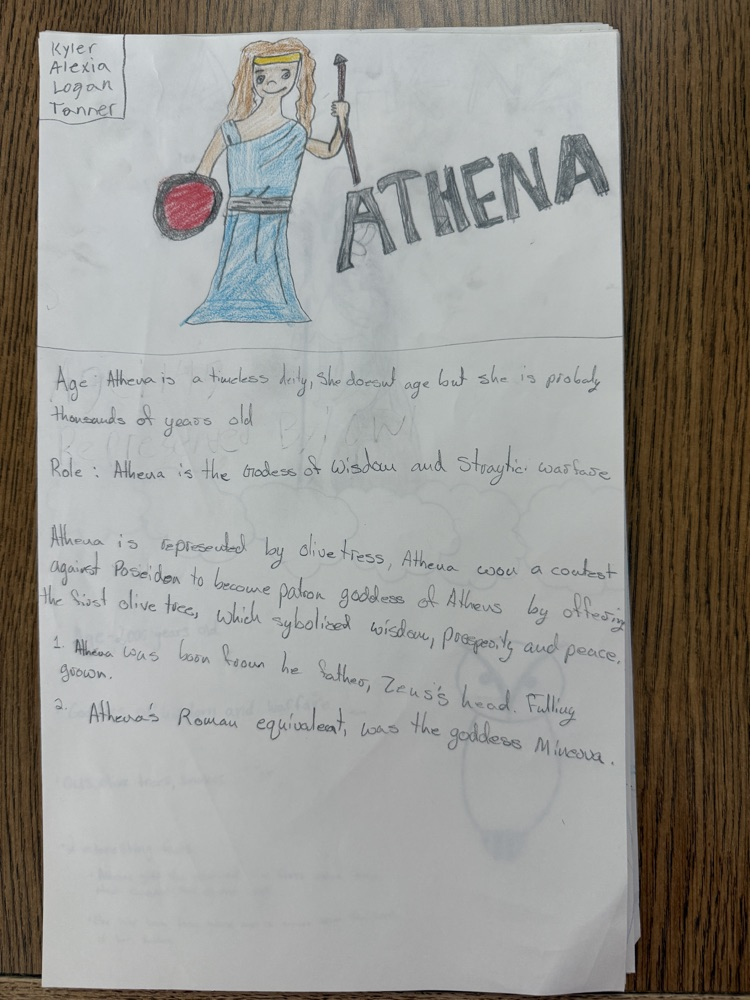 Kyler
Alexia
Logan
Tanner
ATHENA
Age: Athena is a timeless deity, She doesnt age but she is probaly
thousands of years old
Role: Athena is the Godess of Wisdom and Straytic warfare
Athena is represented by olive tress, Athena won a contest
against Poseidon to become patron goddess of Athens by offering
the first olive tree, which sybolized wisdom, prosperity and peace.
1. Athena was born from he father, Zeus's head. Fulling
grown.
2. Athena's Roman equivalent, was the goddess Minerva.